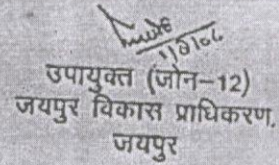 1/8/06
उपायुक्त (जोन-12)
जयपुर विकास प्राधिकरण,
जयपुर